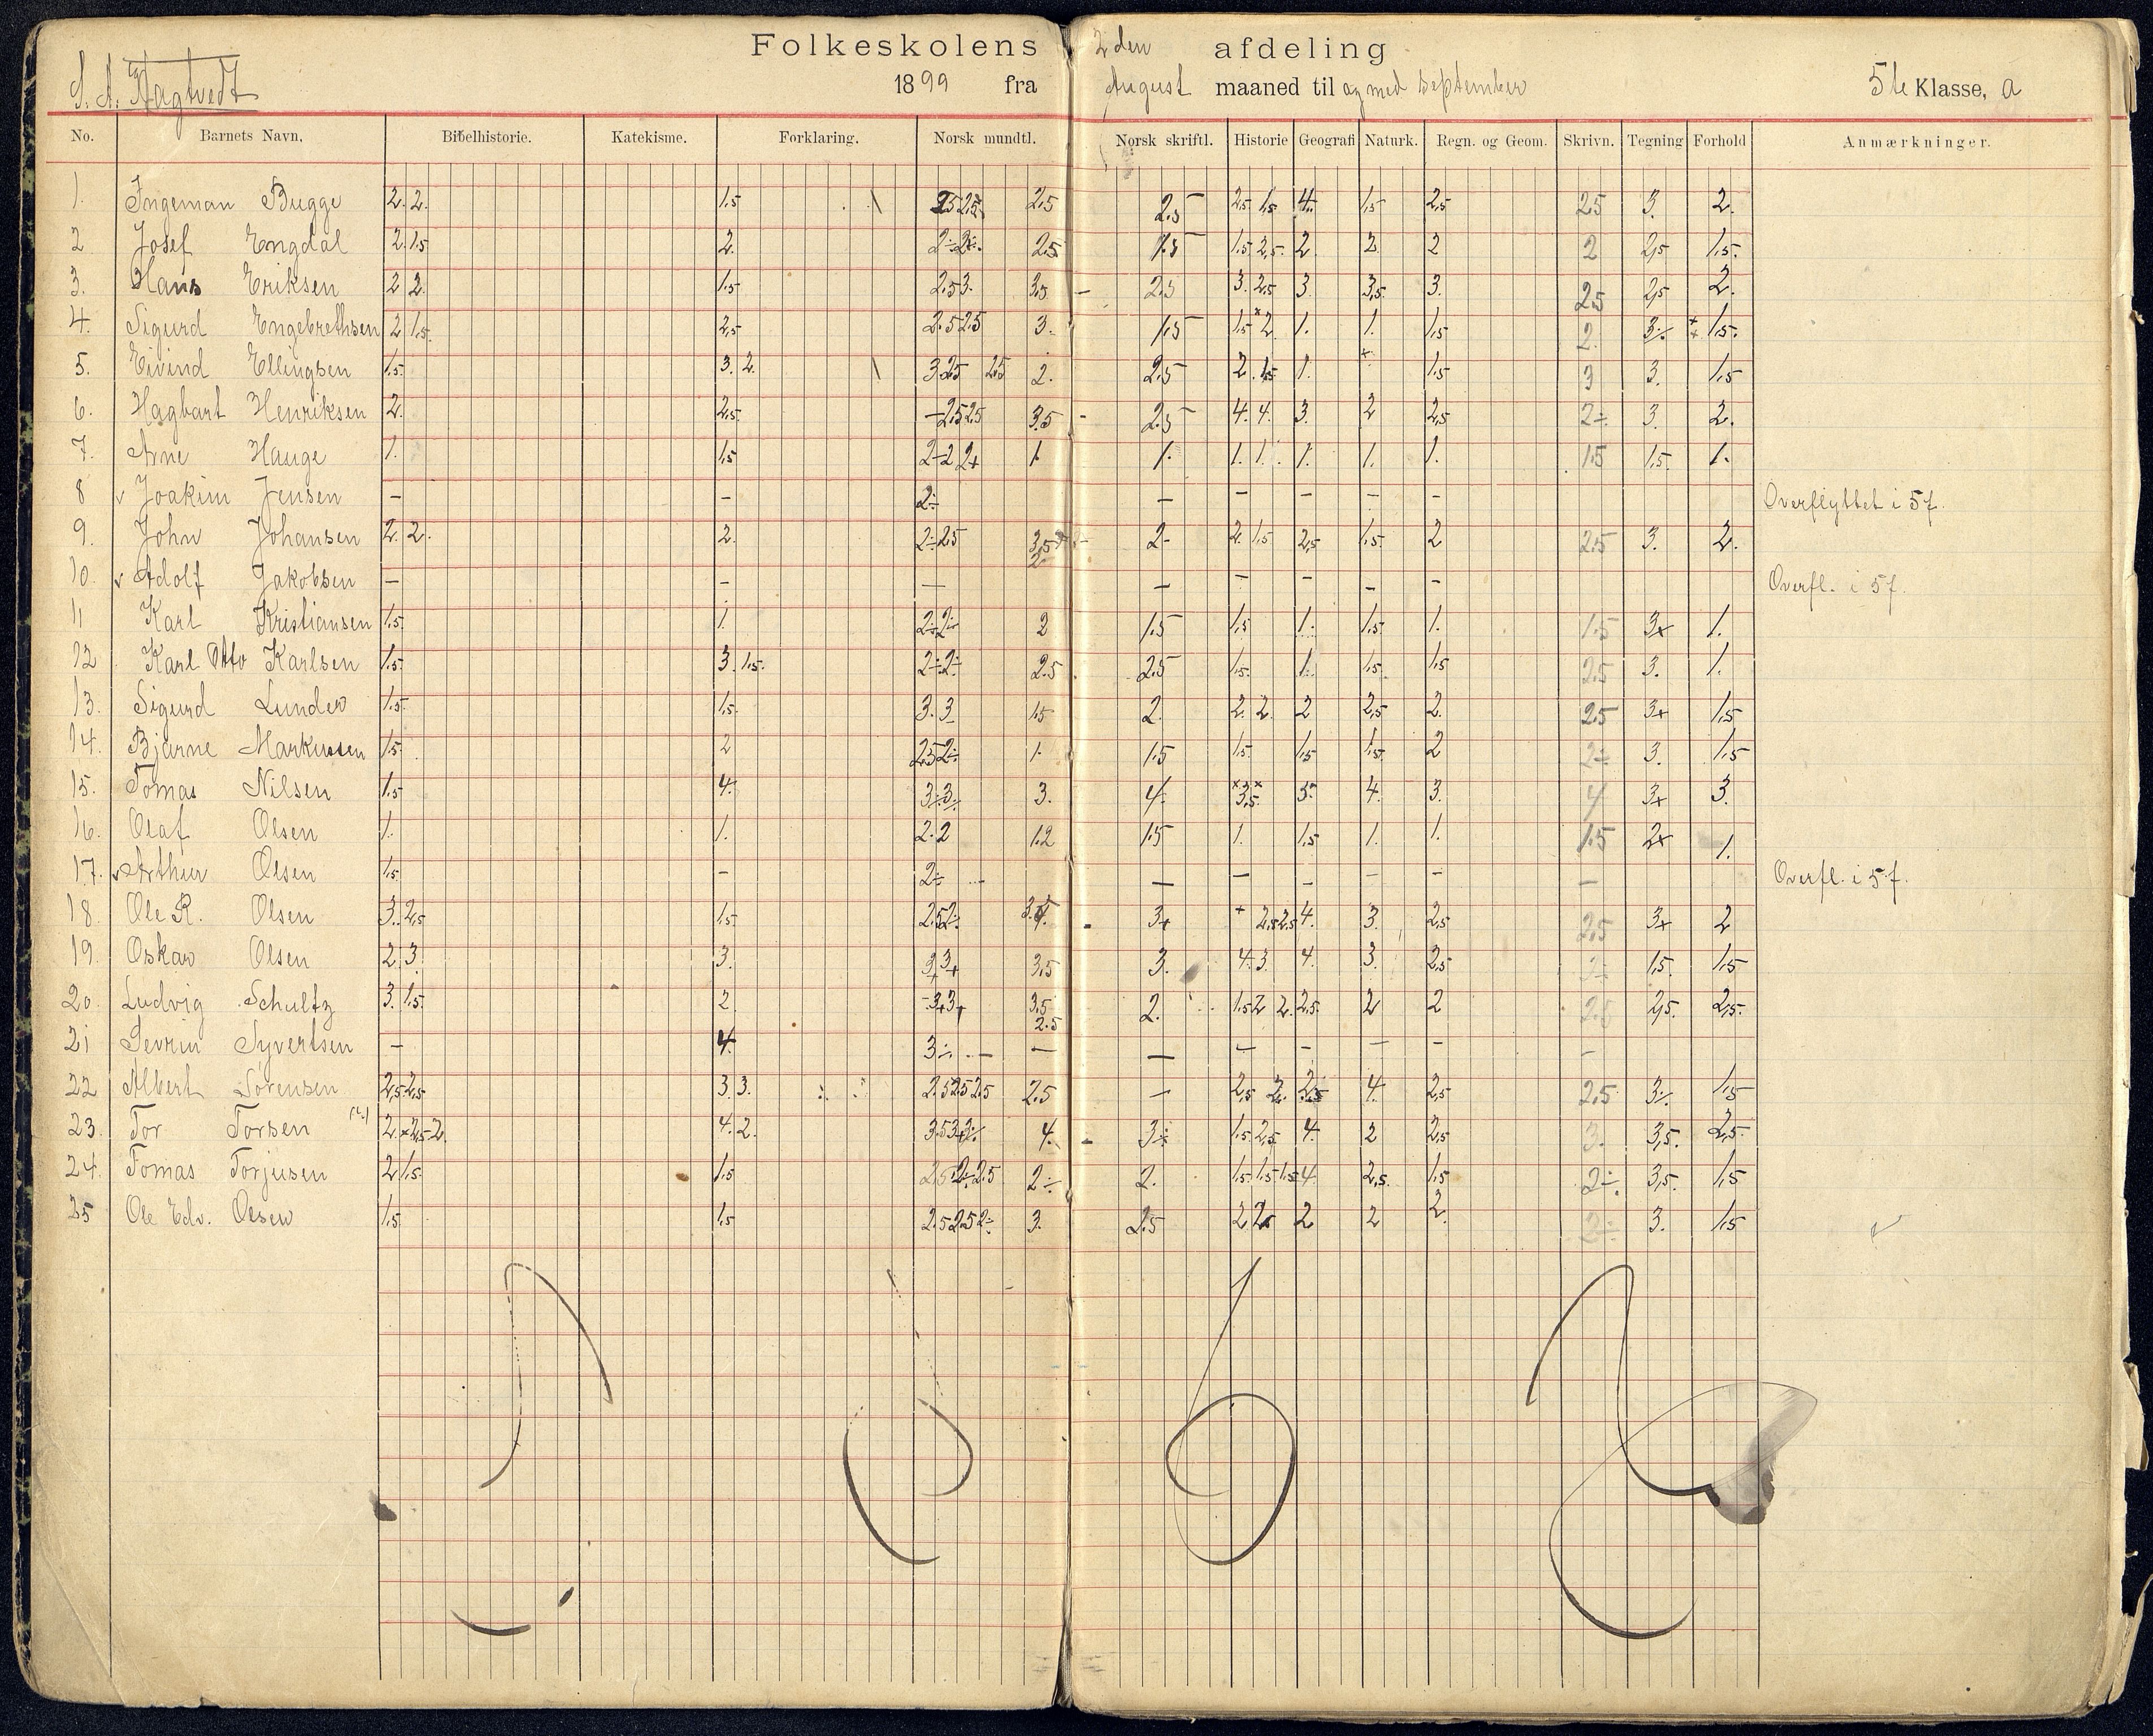 Folkeskolens 2den afdeling
S. A. Hagtvedt 1899 fra August maaned til og med September 5te Klasse, a
No. Barnets Navn. Bibelhistorie. Katekisme. Forklaring. Norsk mundtl. Norsk skriftl. Historie Geografi Naturk. Regn. og Geom. Skrivn. Tegning Forhold Anmærkninger.
1. Ingeman Bugge 2. 2. 1.5 2.5 2.5 2.5 2.5 2.5 1.5 4. 1.5 2.5 2.5 3. 2.
2 Josef Engdal 2. 1.5 2. 2÷ 2÷. 2.5 1.5 1.5 2.5. 2. 2. 2 2 2.5 1.5.
3. Hans Eriksen 2 2. 1.5 2.5 3. 3.5 – 2.5 3. 2.5 3. 3.5. 3. 2.5 2.5 2.
4. Sigurd Engebrethsen 2 1.5. 2.5 2.5 2.5 3. 1.5 1.5 2. 1. 1. 1.5 2. 3÷ 1.5.
5. Eivind Ellingsen 1.5. 3. 2. 3 2.5 2.5 2. 2.5 2. 1.5 1. 1.5 3 3. 1.5
6. Hagbart Henriksen 2. 2.5. – 2.5 2.5 3.5 - 2.5 4. 4. 3. 2 2.5 2÷ 3. 2.
7. Arne Hauge 1. 1.5 2÷ 2 2+ 1 1. 1. 1. 1. 1. 1. 1.5 1.5. 1.
8 v Joakim Jensen – – 2÷ – – – – – Overflyttet i 5f.
9. John Johansen 2. 2. 2. 2÷ 2.5 3.5 2 2- 2. 1.5 2.5 1.5. 2 2.5 3. 2.
10. v Adolf Jakobsen – – – – – – – – Overfl. i 5f.
11 Karl Kristiansen 1.5. 1. 2÷ 2÷ 2 1.5 1.5 1. 1.5. 1. 1.5 3+ 1.
12 Karl Otto Karlsen 1.5. 3. 1.5. 2÷ 2÷ 2.5 2.5 1.5. 1. 1.5. 1.5 2.5 3. 1.
13. Sigurd Lunder 1.5. 1.5. 3. 3 1.5 2. 2. 2. 2 2.5 2. 2.5 3+ 1.5
14. Bjarne Markussen 1.5. 2 2.5 2÷ 1. 1.5 1.5. 1.5 1.5. 2 2÷ 3. 1.5
15. Tomas Nilsen 1.5 4. 3÷ 3÷ 3. 4. 3.5. 3. 4. 3. 4 3+ 3.
16. Olaf Olsen 1. 1. 2. 2 1.2 1.5 1. 1.5 1. 1. 1.5 2+ 1.
17. v Arthur Olsen 1.5. – 2÷ – – – – – – – Overfl. i 5f.
18. Ole R. Olsen 3. 2.5 1.5 2.5 2÷ 3. 4. 3+ + 2.5 2.5 4. 3. 2.5 2.5 3+ 2
19. Oskar Olsen 2. 3. 3. 3+ 3+ 3.5 3. 4. 3. 4. 3. 2.5 1.5. 1.5
20. Ludvig Schultz 3. 1.5. 2. 3+ 3+ 3.5 2.5 2. 1.5 2 2. 2.5. 2 2 2.5 2.5. 2.5.
21 Sevrin Syvertsen – 4. 3÷ – – – – – – – –
22 Albert Sørensen 2.5 2.5 3. 3. 2.5 2.5 2.5 2.5 – 2.5 2. 2.5 4. 2.5 2.5 3÷ 1.5
23. Tor Torsen 2. 2.5 2. 4. 2. 3.5 3+ 3÷ 4. 3÷ 1.5. 2.5 4. 2 2.5 3. 3.5. 2.5.
24. Tomas Torjusen 2 1.5. 1.5 2.5 2÷ 2.5 2÷ 2. 1.5. 1.5 1.5 4 2.5. 1.5 2÷ 3.5. 1.5
25 Ole Edv. Olsen 1.5. 1.5 2.5 2.5 2÷ 3. 2.5 2 2.5 2 2 2. 2÷ 3. 1.5